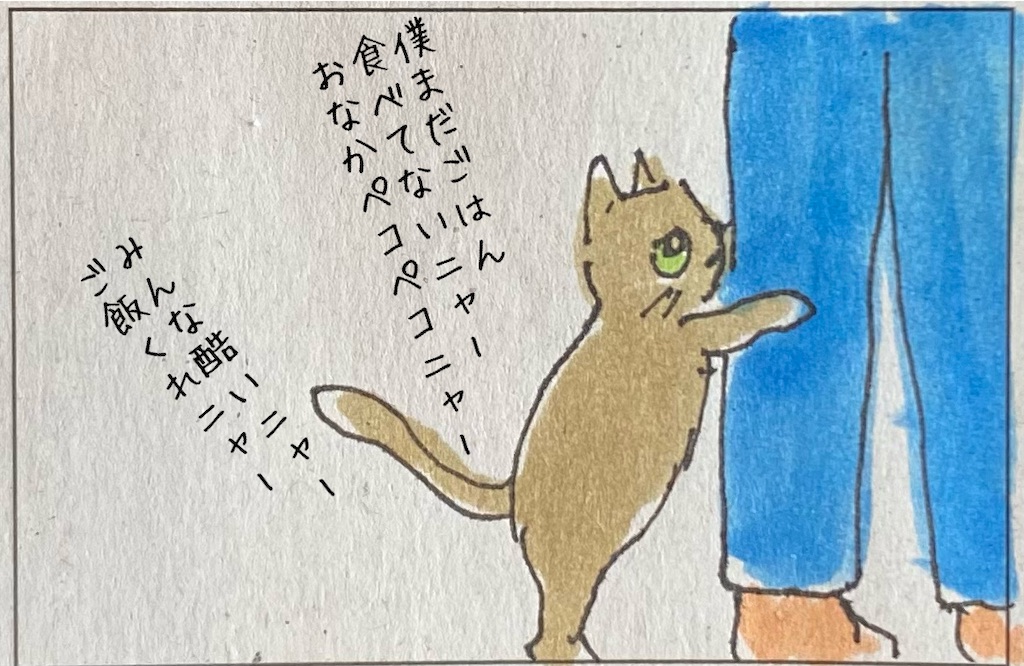 僕まだごはん
食べてないニャー
おなかペコペコニャー
みんな酷いニャー
ご飯くれニャー